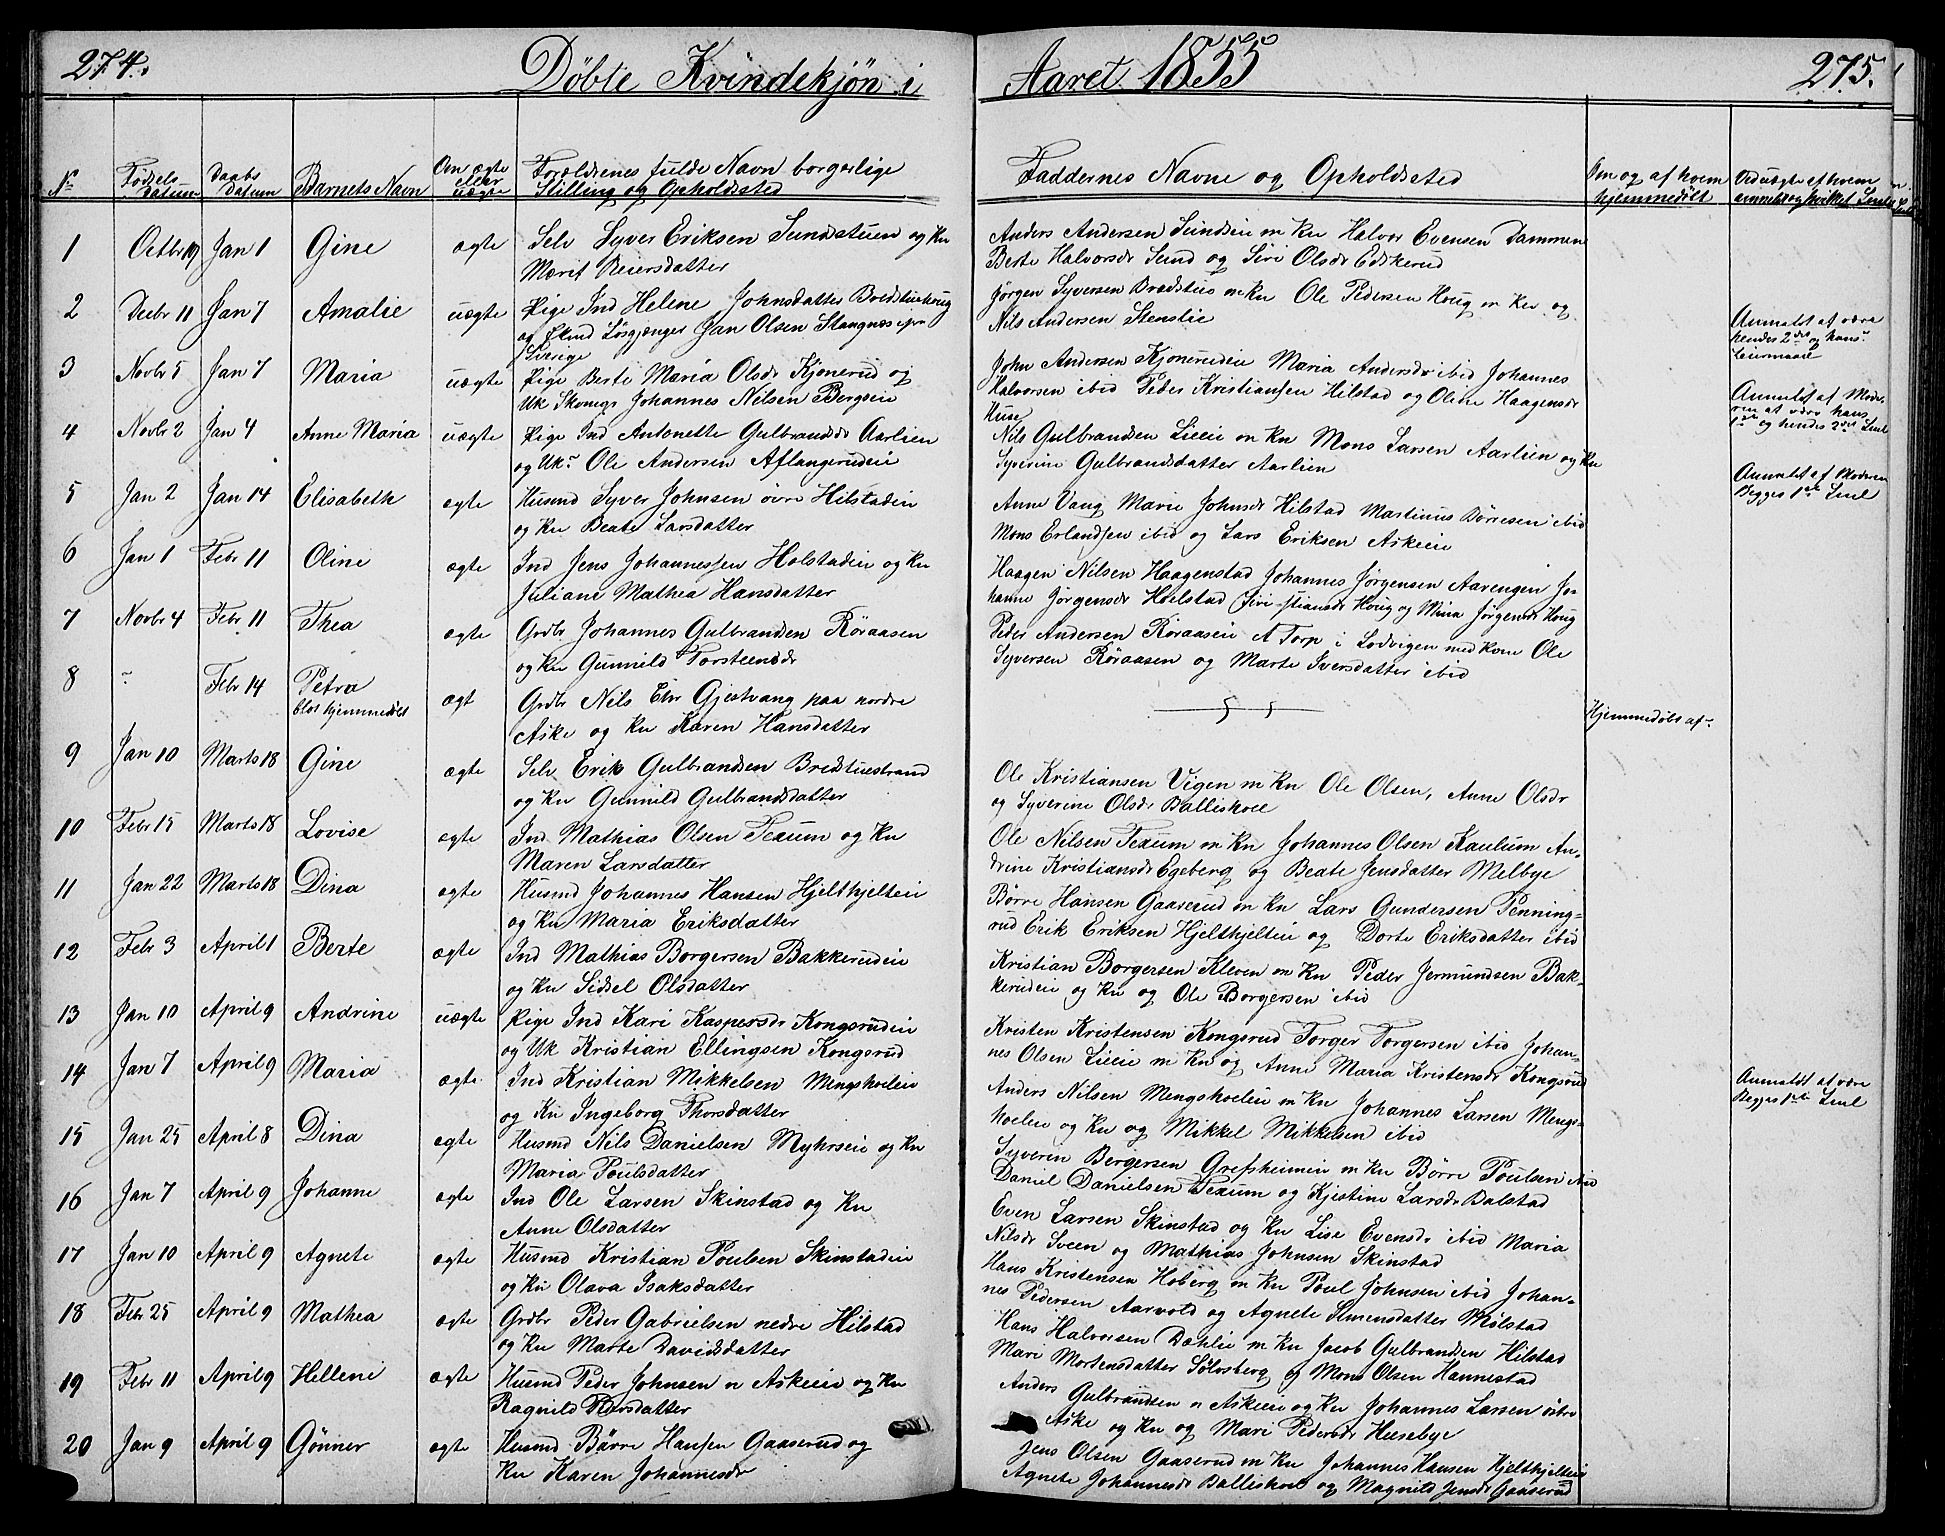 274.
Döbte Kvindekjøn i
Aaret 1855
275.
No
Fødsels Datum
Daabs Datum
Barnets Navn
Om ægte eller uægte
Forældrenes fulde Navn borgerlige Stilling og Opholdssted
Faddernes Navne og Opholdssted
Om og af hvem hjemmedøbt
Ved uægte af hvem anmeldt og hvilket Leierm
1 Octbr 19 Jan 1 Gine ægte Selv Syver Eriksen Sundstuen og Kn
Marit Reiersdatter
Anders Andersen Sundeie m Kn Halvor Evensen Dammen
Berte Halvorsdr Sund og Siri Olsdr Edskerud
2 Decbr 11 Jan 7 Amalie uægte Pige Ind Helene Johnsdatter Bredstuehoug
og Ekmd Løsgjænger Jan Olsen Stangnæs i
Sverige
Jørgen Syversen Bredstue m Kn Ole Pedersen Houg m Kn og
Nils Andersen Stenslie
Anmeldt at være
hendes 2det og hans
Leiermaal
3 Novbr 5 Jan 7 Maria uægte Pige Berte Maria Olsdr Kjonerud og
Uk Skomgr Johannes Nilsen Bergseie
John Andersen Kjonerudeie Maria Andersdr ibid Johannes
Halvorsen ibid Peder Kristiansen Hilstad og Oline Haagensdr
Huse
Anmeldt af Moder
om at være hans
1ste og hendes 2det Leml
4 Novbr 2 Jan 4 Anne Maria uægte Pige Ind Antonette Gulbrandsdr Aarlien
og Uk Ole Andersen Aflangerudeie
Nils Gulbrandsen Lieeie m Kn Mons Larsen Aarlien og Kn
Syverine Gulbrandsdatter Aarlien
Anmeldt af Moderen
Begges 1ste Leml
5 Jan 2 Jan 14 Elisabeth ægte Husmd Syver Johnsen øvre Hilstadeie
og Kn Beate Larsdatter
Anne Vang Marie Johnsdr Hilstad Martinus Børresen ibid
Mons Erlandsen ibid og Lars Eriksen Askeeie
6 Jan 1 Febr 11 Oline ægte Ind Jens Johannessen Holstadeie og Kn
Juliane Mathea Hansdatter
Haagen Nilsen Haagenstad Johannes Jørgensen Aarengen Jo-
hanne Jørgensdr Hoelstad Siri stiansdr Houg og Mina Jørgensdr Houg
7 Novbr 4 Febr 11 Thea ægte Grdbr Johannes Gulbrandsen Røraasen
og Kn Gunnild Torsteensdr
Peder Andersen Røraaseie A Torp i Lodvigen med Kone Ole
Syversen Røraasen og Marte Iversdatter ibid
8 - Febr 14 Petra ægt Grdbr Nils Ehr Gjestvang paa nordre
blot hjemmedøbt
Aske og Kn Karen Hansdatter
Hjemmedøbt af -
9 Jan 10 Marts 18 Gine ægte Selv Erik Gulbrandsen Bredstuestrand
og Kn Gunnild Gulbrandsdatter
Ole Kristiansen Vigen m Kn Ole Olsen, Anne Olsdr
og Syverine Olsdr Balliskoie
10 Febr 15 Marts 18 Lovise ægte Ind Mathias Olsen Texum og Kn
Maren Larsdatter
Ole Nilsen Texum m Kn Johannes Olsen Kaulum An-
drine Kristiansdr Egeberg og Beate Jensdatter Melbye
11 Jan 22 Marts 18 Dina ægte Husmd Johannes Hansen Hjelthjelteie
og Kn Maria Eriksdatter
Børre Hansen Gaaserud m Kn Lars Gundersen Penning-
rud Erik Eriksen Hjelthjelteie og Dorte Eriksdatter ibid
12 Febr 3 April 1 Berte ægte Ind Mathias Borgersen Bakkerudeie
og Kn Sidsel Olsdatter
Kristian Borgersen Kleven m Kn Peder Jermundsen Bak-
kerudeie og Kn og Ole Borgersen ibid
13 Jan 10 April 9 Andrine uægte Pige Ind Kari Kaspersdr Kongsrudeie
og Uk Kristian Ellingsen Kongsrud
Kristen Kristensen Kongsrud Torger Torgersen ibid Johan-
nes Olsen Lieeie m Kn og Anne Maria Kristensdr Kongsrud
Anmeldt at være
Begges 1ste Leml
14 Jan 7 April 9 Maria ægte Ind Kristian Mikkelsen Mengshoeleie
og Kn Ingeborg Thorsdatter
Anders Nilsen Mengshoeleie m Kn Johannes Larsen Mengs-
hoeleie og Kn og Mikkel Mikkelsen ibid
15 Jan 25 April 8 Dina ægte Husmd Nils Danielsen Myhrseie og Kn
Maria Poulsdatter
Syveren Bergersen Grefsheimeie m Kn Børre Poulsen ibid
Daniel Danielsen Texum og Kjestine Larsdr Balstad
16 Jan 7 April 9 Johanne ægte Ind Ole Larsen Skinstad og Kn
Anne Olsdatter
Even Larsen Skinstad og Kn Lise Evensdr ibid Maria
Nilsdr Sveen og Mathias Johnsen Skinstad
17 Jan 10 April 9 Agnete ægte Husmd Kristian Poulsen Skinstadeie
og Kn Olava Isaksdatter
Hans Kristensen Hoberg m Kn Poul Johnsen ibid Johan-
nes Pedersen Aarvold og Agnete Simensdatter Mølstad
18 Febr 25 April 9 Mathea ægte Grdbr Peder Gabrielsen nedre Hilstad
og Kn Marte Davidsdatter
Hans Halvorsen Dæhlie m Kn Jacob Gulbrandsen Hilstad
Mari Mortensdatter Sølvsberg og Mons Olsen Hannestad
19 Febr 11 April 9 Hellene ægte Husmd Peder Johnsen n Askeeie og Kn
Ragnild Iversdatter
Anders Gulbrandsen n Askeeie og Kn Johannes Larsen østre
Aske og Kn og Mari Pedersdr Huesebye
20 Jan 9 April 9 Gønner ægte Husmd Børre Hansen Gaaserud og
Kn Karen Johannesdr
Jens Olsen Gaaserud m Kn Johannes Hansen Hjelthjelteie
Agnete Johannesdr Balliskoie og Magnild Jensdr Gaaserud